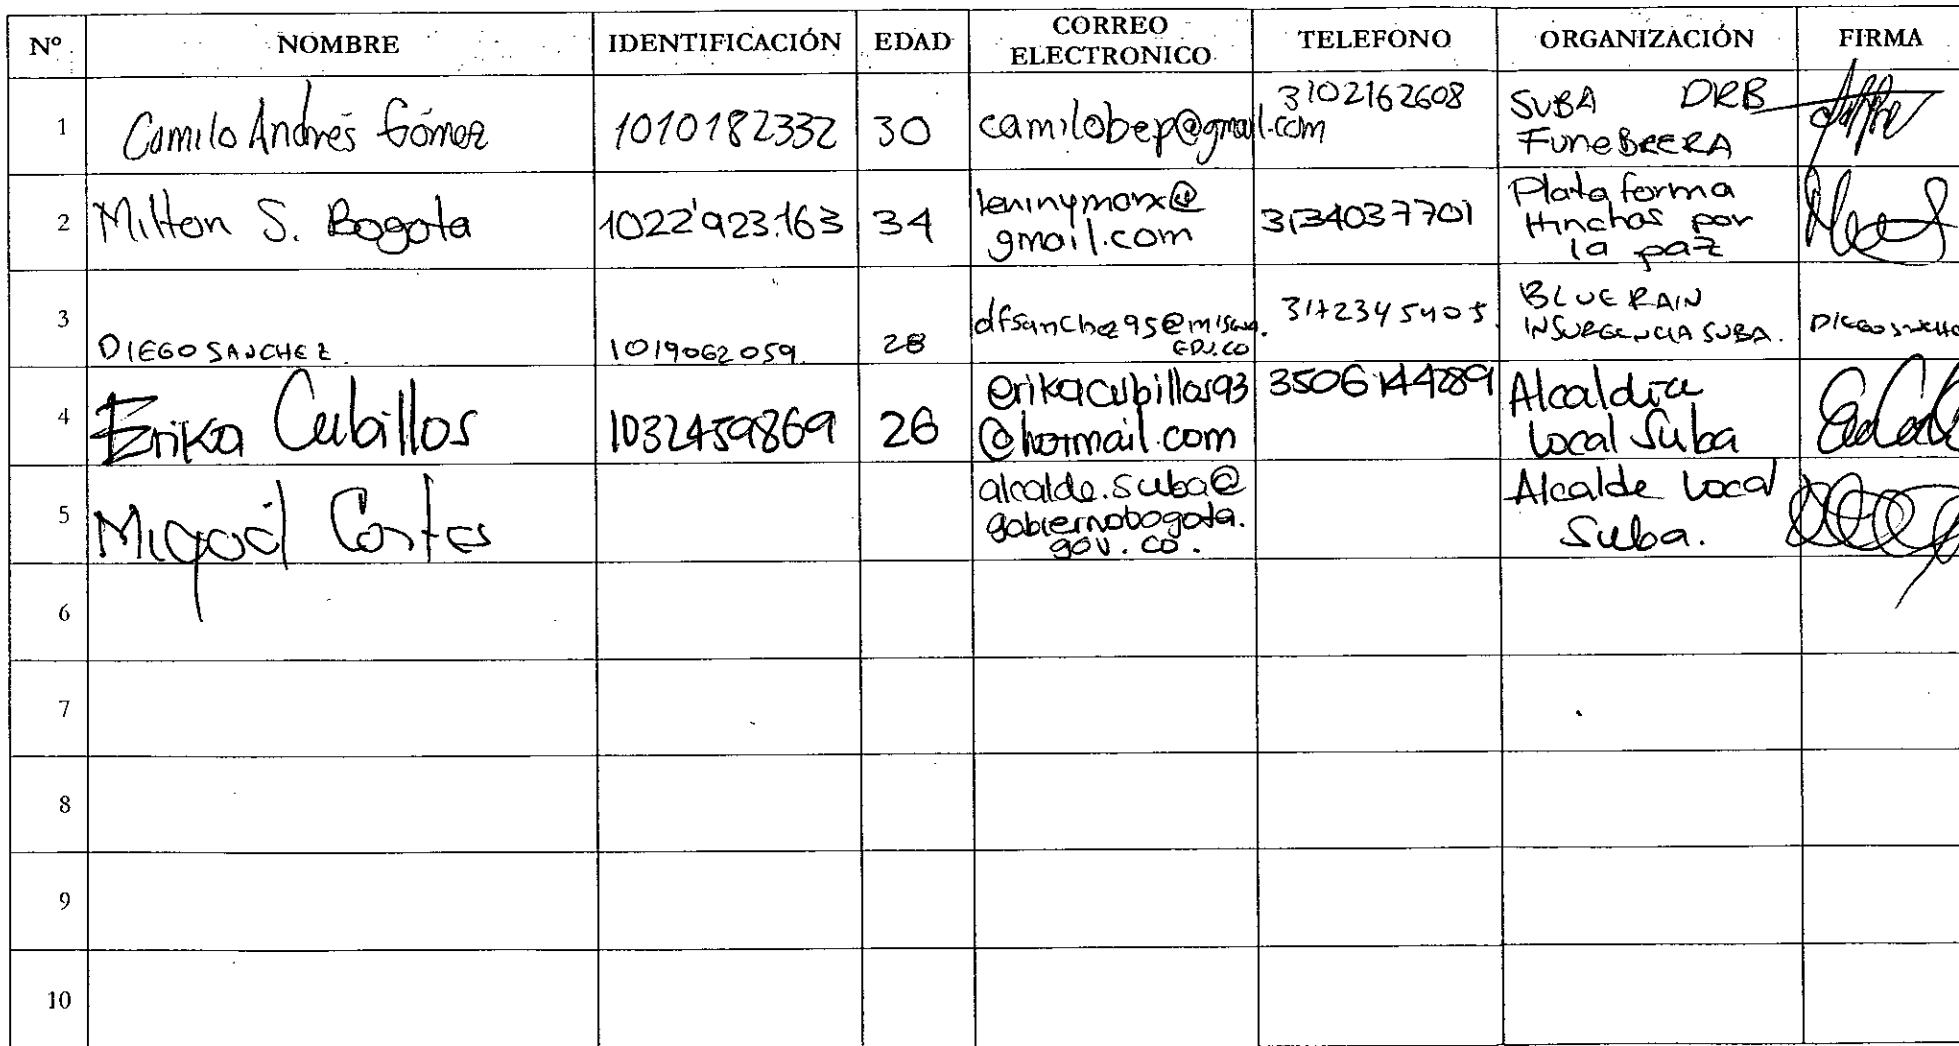 Nº NOMBRE IDENTIFICACIÓN EDAD CORREO ELECTRONICO TELEFONO ORGANIZACIÓN FIRMA
1 Camilo Andrés Gómez 1010182332 30 camilobep@gmail.com 3102162608 SUBA DRB
FuneBRERA
2 Milton S. Bogota 1022'923.163 34 leninymarx@
gmail.com 3134037701 Plataforma
Hinchas por
la paz
3 DIEGO SANCHEZ. 1019062059. 28 3172345405. BLUE RAIN
INSURGENCIA SUBA. DIEGO SANCHE
4 Erika Cubillos 1032459869 26 erikacubillos93
@hotmail.com Alcaldia
Local Suba
5 Miguel Cortes alcalde.suba@
gobiernobogota.
gov.co. Alcalde Local
Suba.
6
7
8
9
10